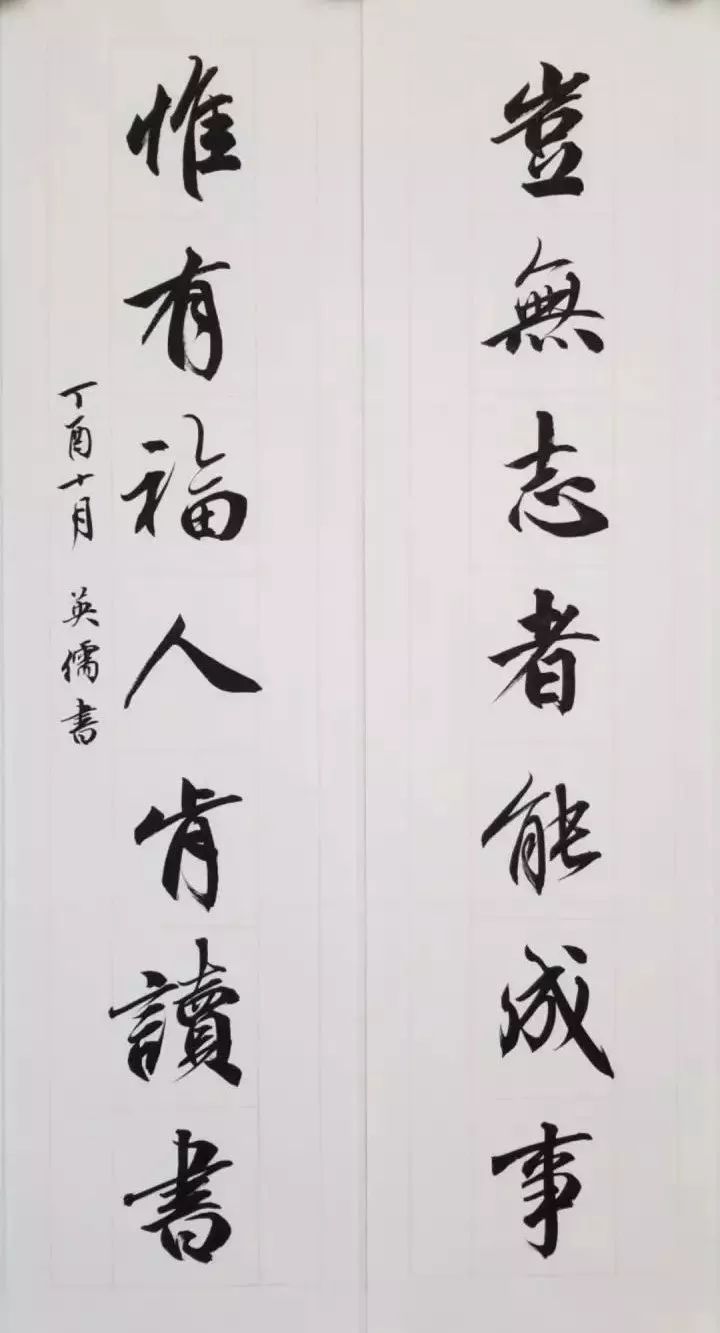 豈無志者能成事
惟有福人肯讀書
丁酉十月 英儒書